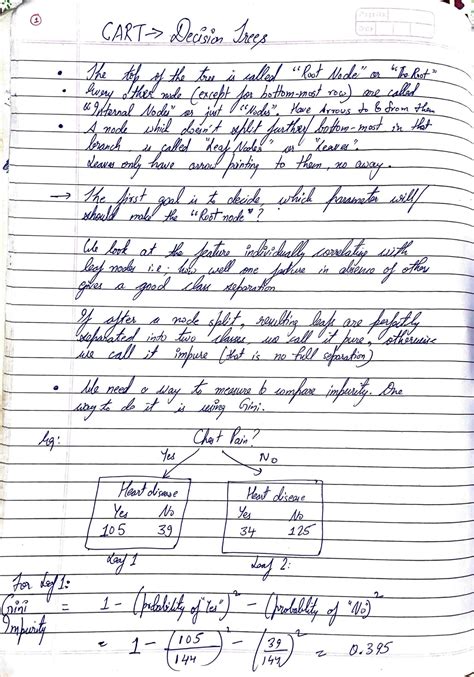 ①
CART → Decision Trees
• The top of the tree is called "Root Node" or "The Root"
• Every other node (except for bottom-most row) are called
"Internal Nodes" or just "Nodes". Have Arrows to & from them
• A node which doesn't split further/bottom-most in that
branch, is called "Leaf Nodes" or "Leaves".
Leaves only have arrow pointing to them, no away.
→ The first goal is to decide, which parameter will/
should make the "Root node"?
We look at the feature individually correlating with
leaf nodes i.e: how well one feature in absence of other
gives a good class separation
If after a node split, resulting leafs are perfectly
separated into two classes, we call it pure, otherwise
we call it impure (that is no full separation)
• We need a way to measure & compare impurity. One
way to do it is using Gini.
Eg: Chest Pain?
Yes No
Heart disease Heart disease
Yes No Yes No
105 39 34 125
Leaf 1 Leaf 2:
For Leaf 1:
Gini Impurity = 1 - (probability of "Yes")² - (probability of "No")²
= 1 - (105/144)² - (39/144)² = 0.395